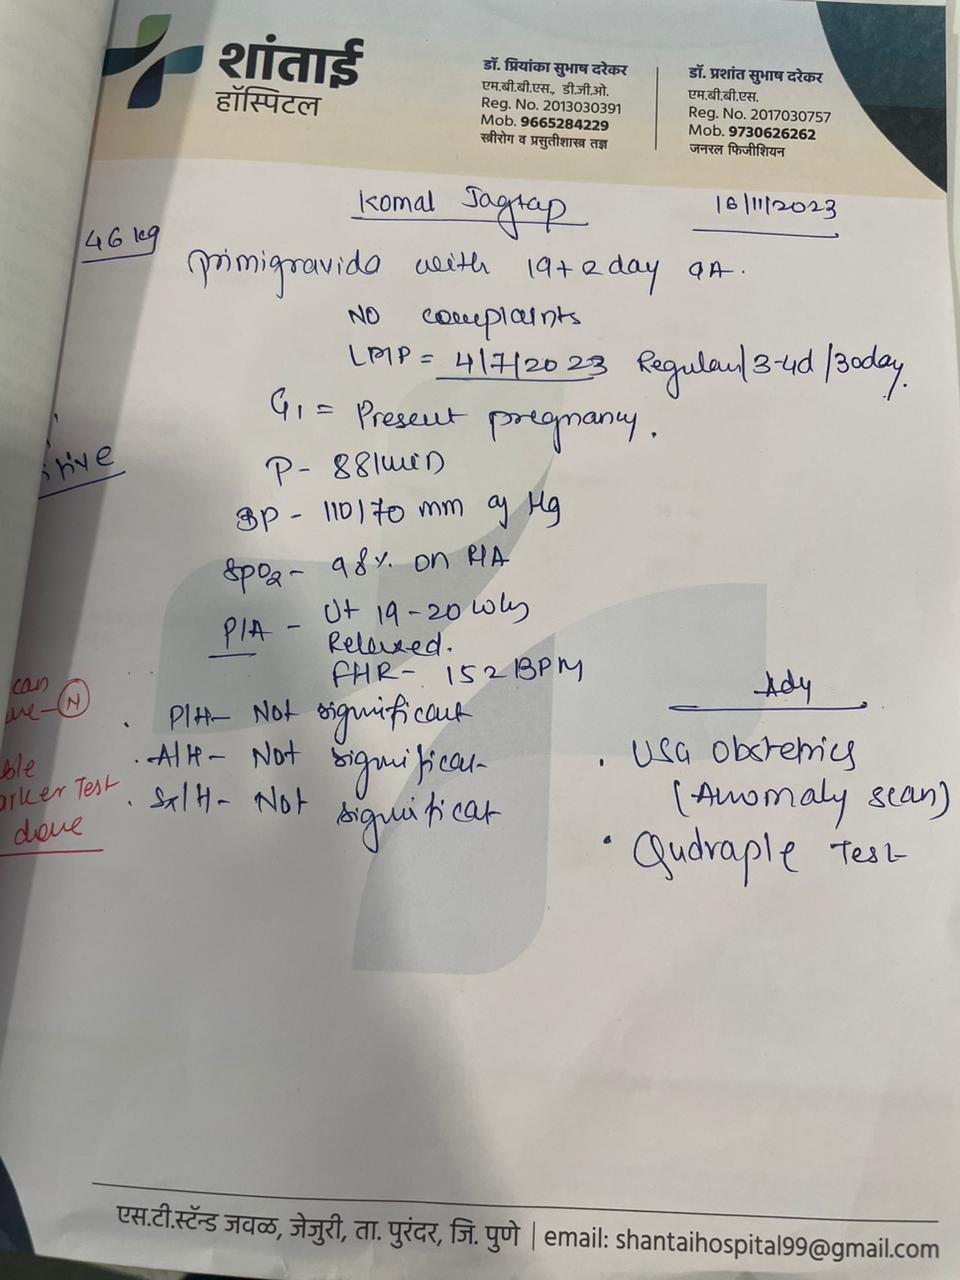 शांताई
हॉस्पिटल
डॉ. प्रियांका सुभाष दरेकर
एम.बी.बी.एस., डी.जी.ओ.
Reg. No. 2013030391
Mob. 9665284229
स्त्रीरोग व प्रसुतीशास्त्र तज्ञ
डॉ. प्रशांत सुभाष दरेकर
एम.बी.बी.एस.
Reg. No. 2017030757
Mob. 9730626262
जनरल फिजीशियन
Komal Jagtap
16/11/2023
46 kg
primigravida with 19+2 day GA.
NO complaints
LMP = 4/7/2023 Regular/3-4d/30day.
G1 = Present pregnancy.
P- 88/min
BP - 110/70 mm of Hg
SpO2 - 98% on RA
P/A - Ut 19-20 wks
Relaxed.
FHR- 152 BPM
can
N
. P/H- Not significant
. A/H- Not significat
. Sx/H- Not significat
Test
done
Adv
. USG Obstetrics
(Anomaly scan)
. Qudraple Test
एस.टी.स्टॅन्ड जवळ, जेजुरी, ता. पुरंदर, जि. पुणे | email: shantaihospital99@gmail.com